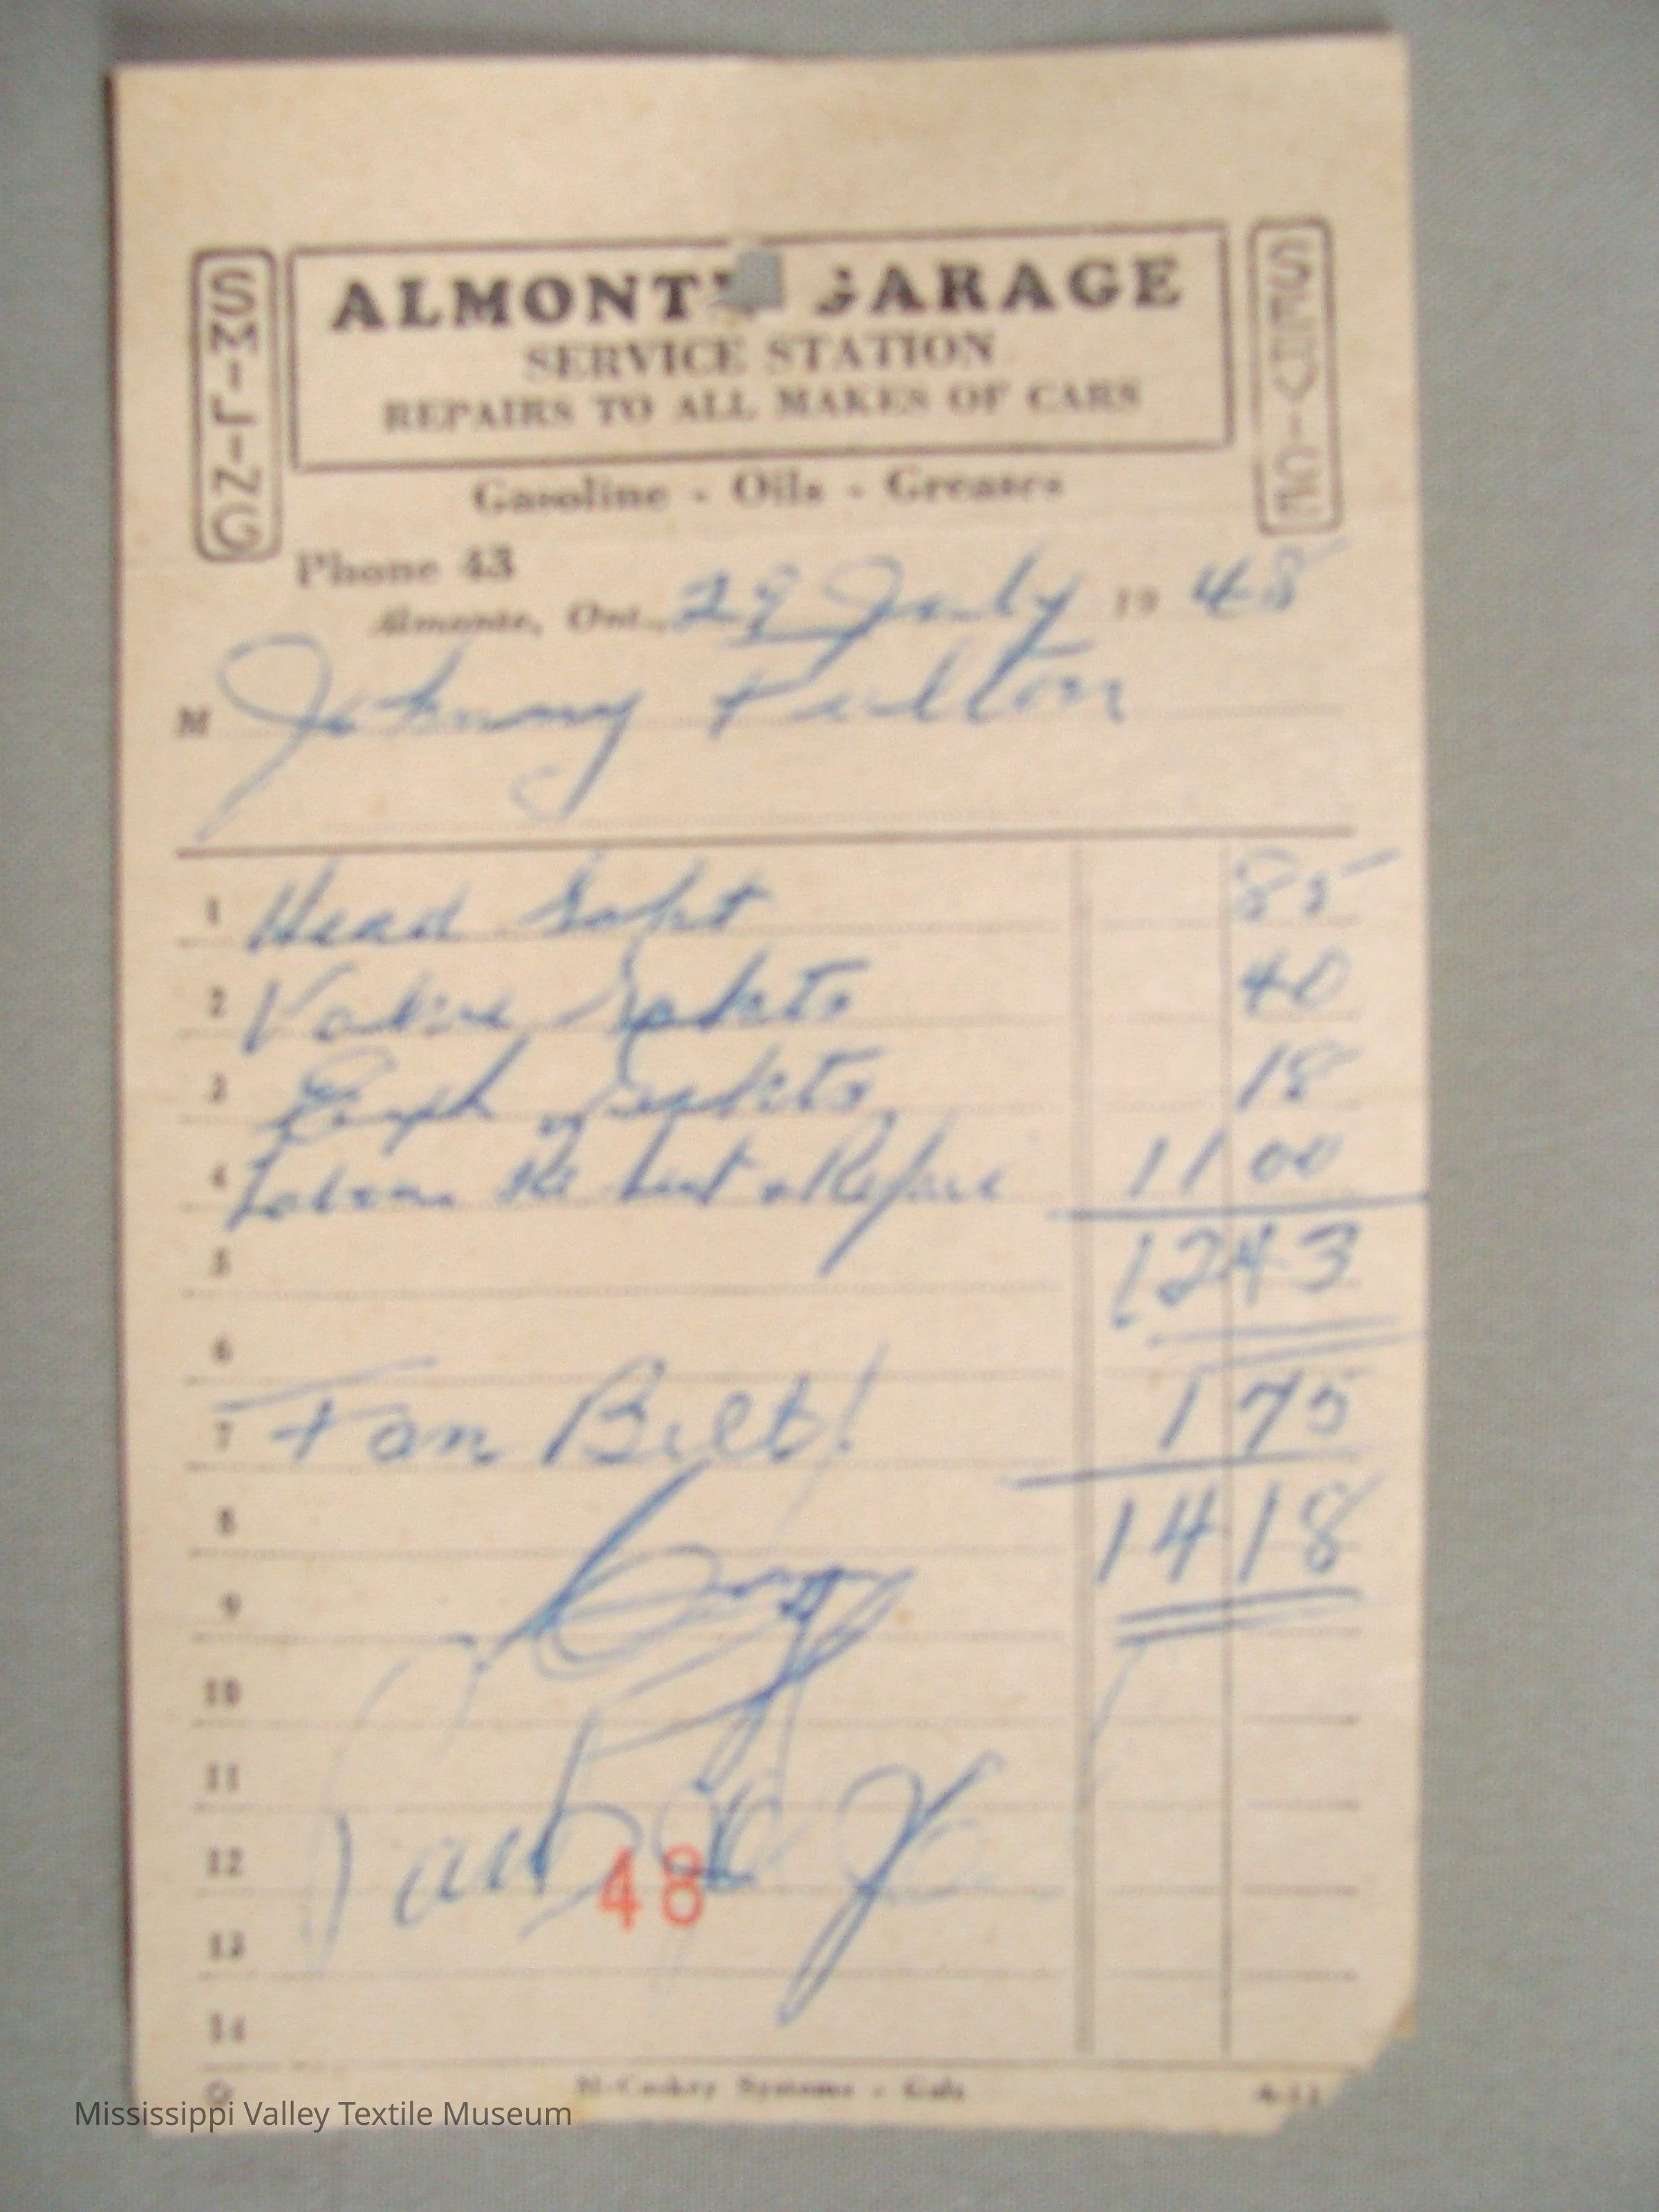 SMILING
SERVICE
ALMONTE GARAGE
SERVICE STATION
REPAIRS TO ALL MAKES OF CARS
Gasoline - Oils - Greases
Phone 43
Almonte, Ont., 29 July 19 48
M Johnny Fulton
1 Head Gskt 85
2 Valve Gskts 40
3 Exph Gaskts 18
4 Labour Repair 11 00
5 12 43
6
7 Fan Belt 1 75
8 14 18
9
10
11
12
48
13
14
Systems - Galt
Mississippi Valley Textile Museum